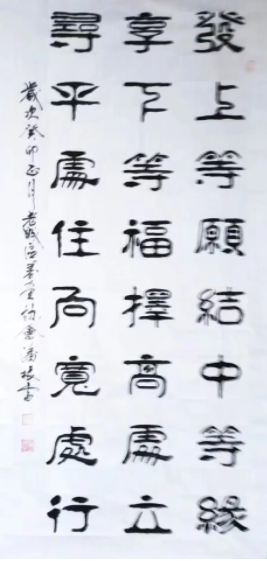 發上等願結中等緣
享下等福擇高處立
尋平處住向寬處行
歲次癸卯正月